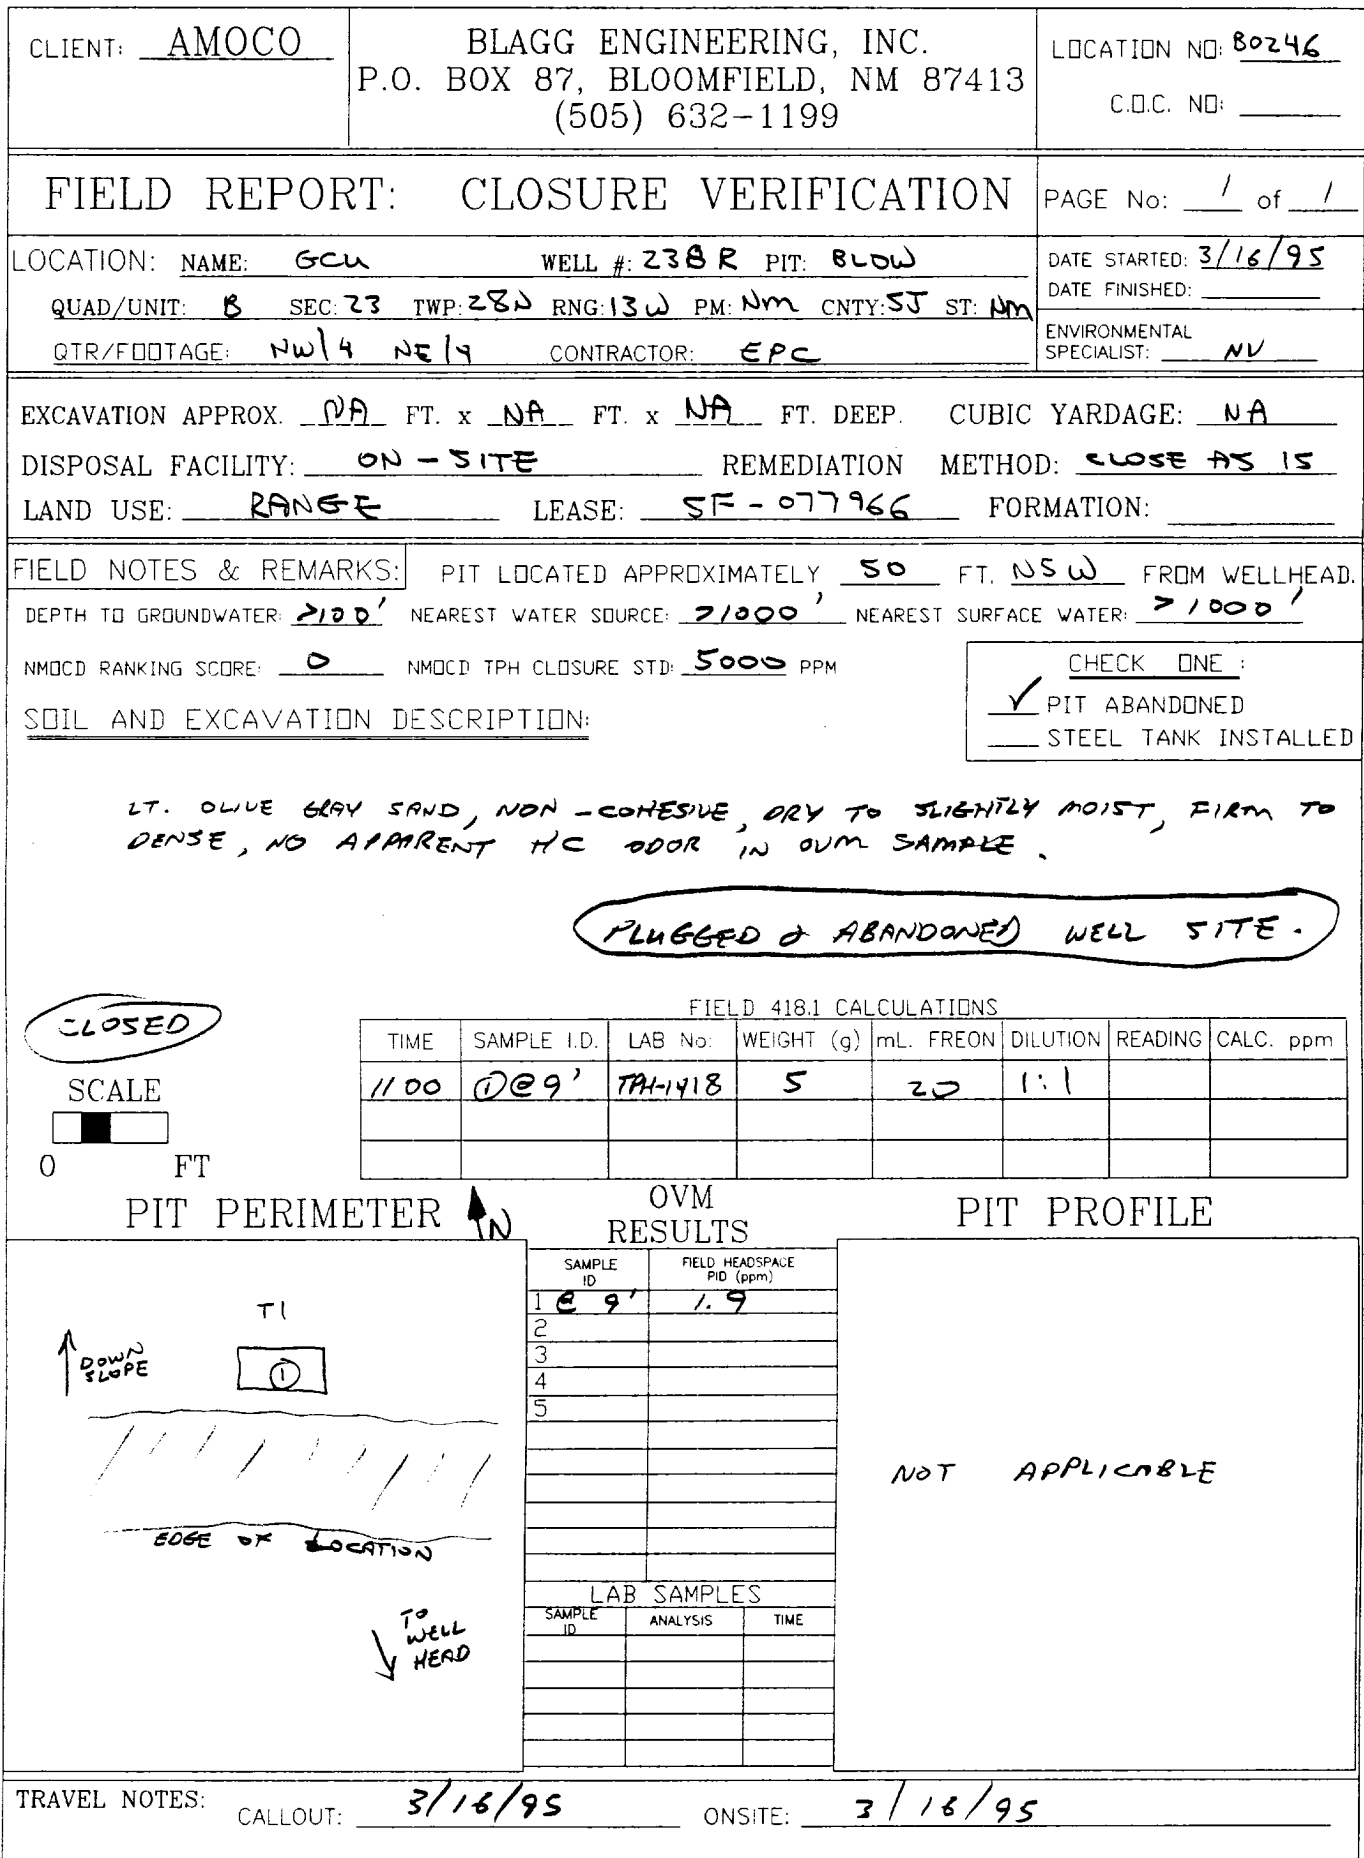 CLIENT: AMOCO
BLAGG ENGINEERING, INC.
P.O. BOX 87, BLOOMFIELD, NM 87413
(505) 632-1199
LOCATION NO: B0246
C.O.C. NO:
FIELD REPORT: CLOSURE VERIFICATION
PAGE No: 1 of 1
LOCATION: NAME: GCU WELL #: 238R PIT: BLOW
QUAD/UNIT: B SEC: 23 TWP: 28N RNG: 13W PM: NM CNTY: SJ ST: NM
QTR/FOOTAGE: NW/4 NE/4 CONTRACTOR: EPC
DATE STARTED: 3/16/95
DATE FINISHED:
ENVIRONMENTAL
SPECIALIST: NV
EXCAVATION APPROX. NA FT. x NA FT. x NA FT. DEEP. CUBIC YARDAGE: NA
DISPOSAL FACILITY: ON-SITE REMEDIATION METHOD: CLOSE AS IS
LAND USE: RANGE LEASE: SF-077966 FORMATION:
FIELD NOTES & REMARKS: PIT LOCATED APPROXIMATELY 50 FT. FROM WELLHEAD.
DEPTH TO GROUNDWATER: >100' NEAREST WATER SOURCE: >1000' NEAREST SURFACE WATER: >1000'
NMOCD RANKING SCORE: 0 NMOCD TPH CLOSURE STD: 5000 PPM
CHECK ONE :
✓ PIT ABANDONED
STEEL TANK INSTALLED
SOIL AND EXCAVATION DESCRIPTION:
LT. OLIVE GRAY SAND, NON-COHESIVE, DRY TO SLIGHTLY MOIST, FIRM TO
DENSE, NO APPARENT HC ODOR IN OVM SAMPLE.
PLUGGED & ABANDONED WELL SITE.
CLOSED
FIELD 418.1 CALCULATIONS
TIME SAMPLE I.D. LAB No: WEIGHT (g) mL. FREON DILUTION READING CALC. ppm
1100 ①@9' TPH-1418 5 20 1:1
SCALE
0 FT
PIT PERIMETER N
OVM
RESULTS
PIT PROFILE
SAMPLE ID FIELD HEADSPACE PID (ppm)
1 @ 9' 1.9
2
3
4
5
T1
DOWN
SLOPE
①
EDGE OF LOCATION
TO
WELL
HEAD
NOT APPLICABLE
LAB SAMPLES
SAMPLE ID ANALYSIS TIME
TRAVEL NOTES: CALLOUT: 3/16/95 ONSITE: 3/16/95